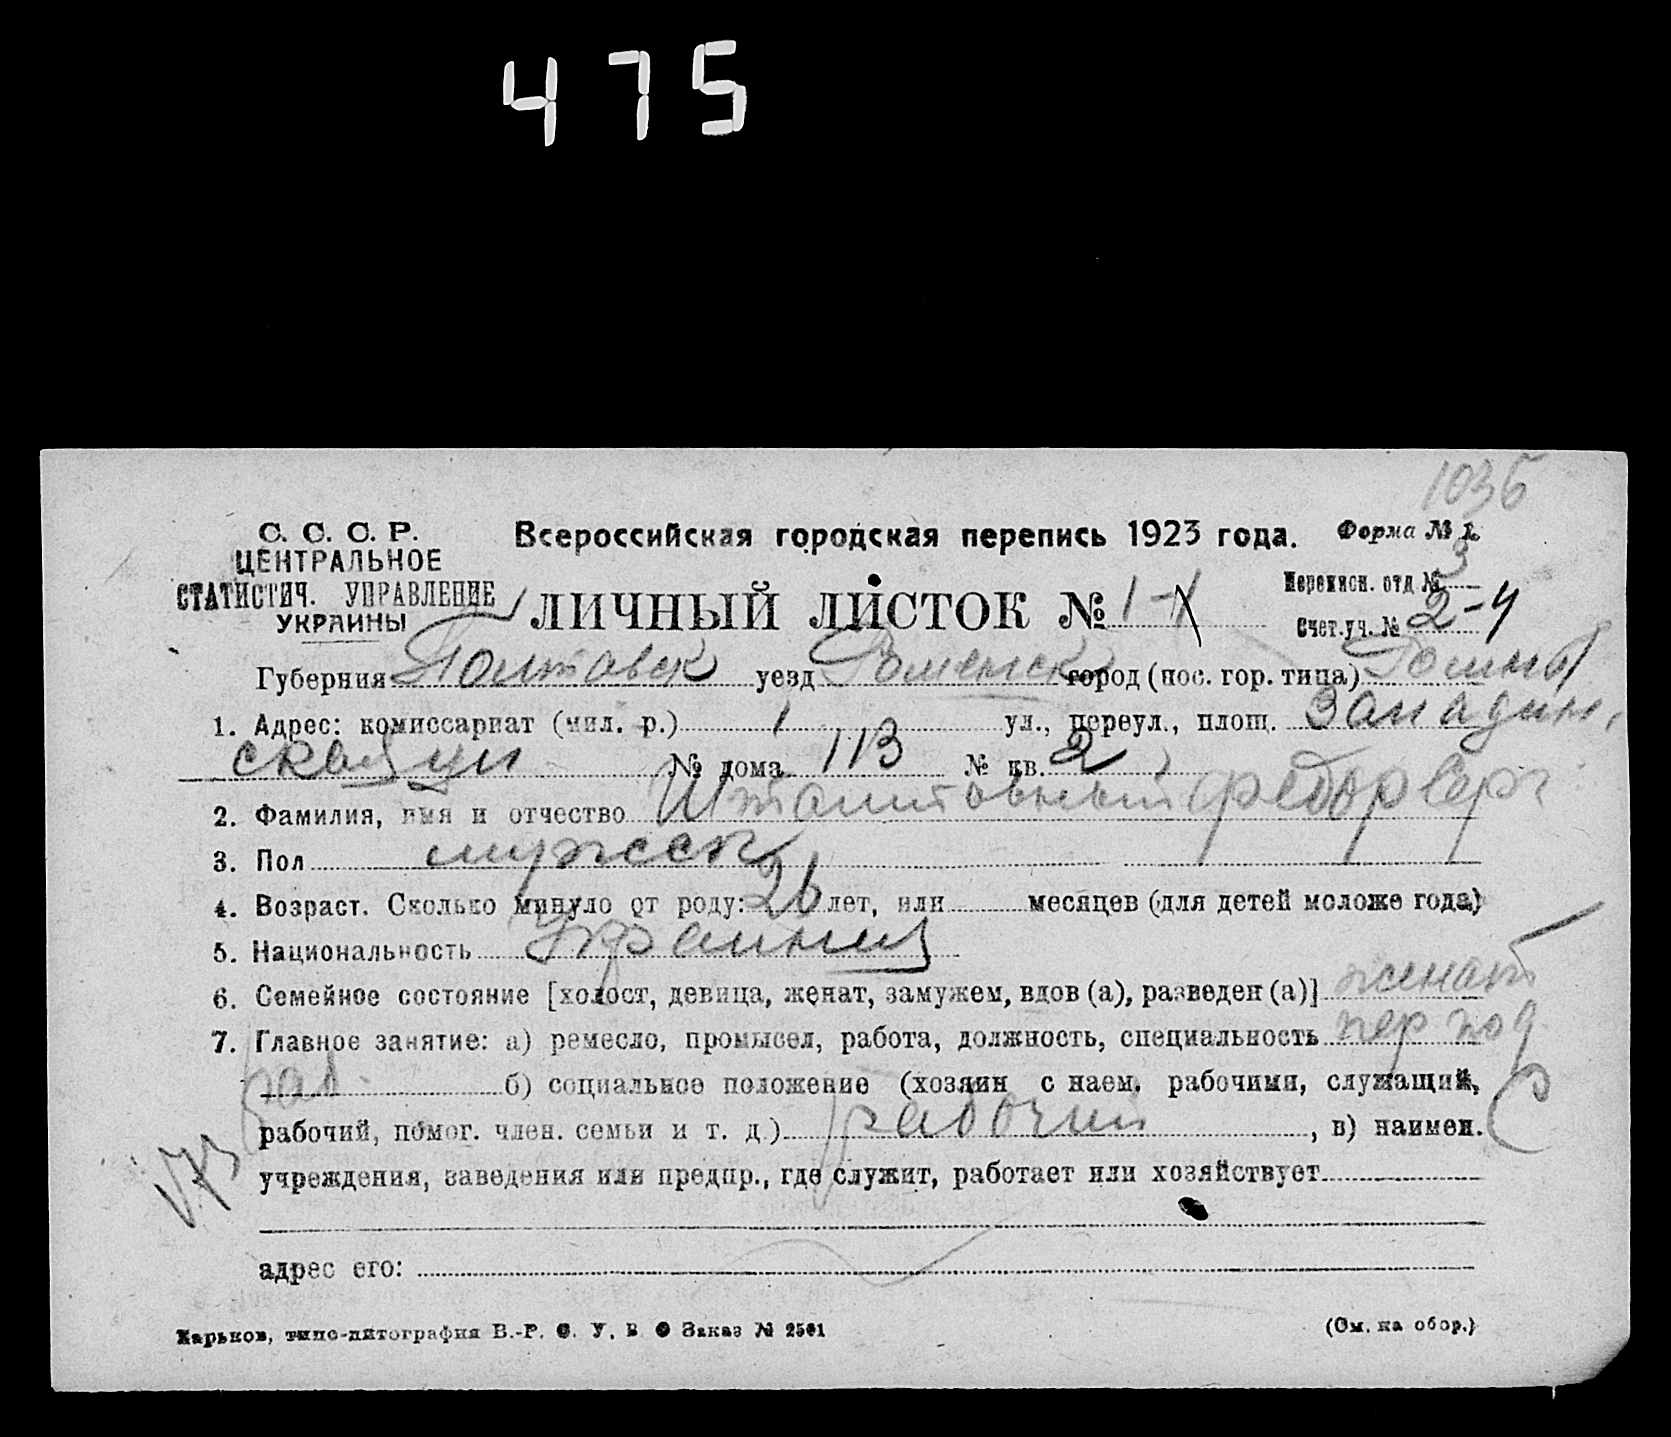 475
1036
С. С. С. Р.
ЦЕНТРАЛЬНОЕ
СТАТИСТИЧ. УПРАВЛЕНИЕ
УКРАИНЫ
Всероссийская городская перепись 1923 года.
Форма № 1.
ЛИЧНЫЙ ЛИСТОК № 1-
Переписн. отд № 3
Счет.уч. № 2-4
Губерния Полтавск уезд Роменск город (пос. гор. типа) Ромны
1. Адрес: комиссариат (мил. р.) 1 ул., переул., площ. Западин,
ская ул № дома 113 № кв. 2
2. Фамилия, имя и отчество Федор Серг
3. Пол мужск
4. Возраст. Сколько минуло от роду: 26 лет, или месяцев (для детей моложе года)
5. Национальность Украинец
6. Семейное состояние [холост, девица, женат, замужем, вдов (а), разведен (а)] женат
7. Главное занятие: а) ремесло, промысел, работа, должность, специальность пер под
раб. б) социальное положение (хозяин с наем. рабочими, служащий,
рабочий, помог. член. семьи и т. д.) рабочий, в) наимен.
учреждения, заведения или предпр., где служит, работает или хозяйствует
адрес его:
Харьков, типо-литография В.-Р. С. У. В. О Заказ № 2561
(См. на обор.)